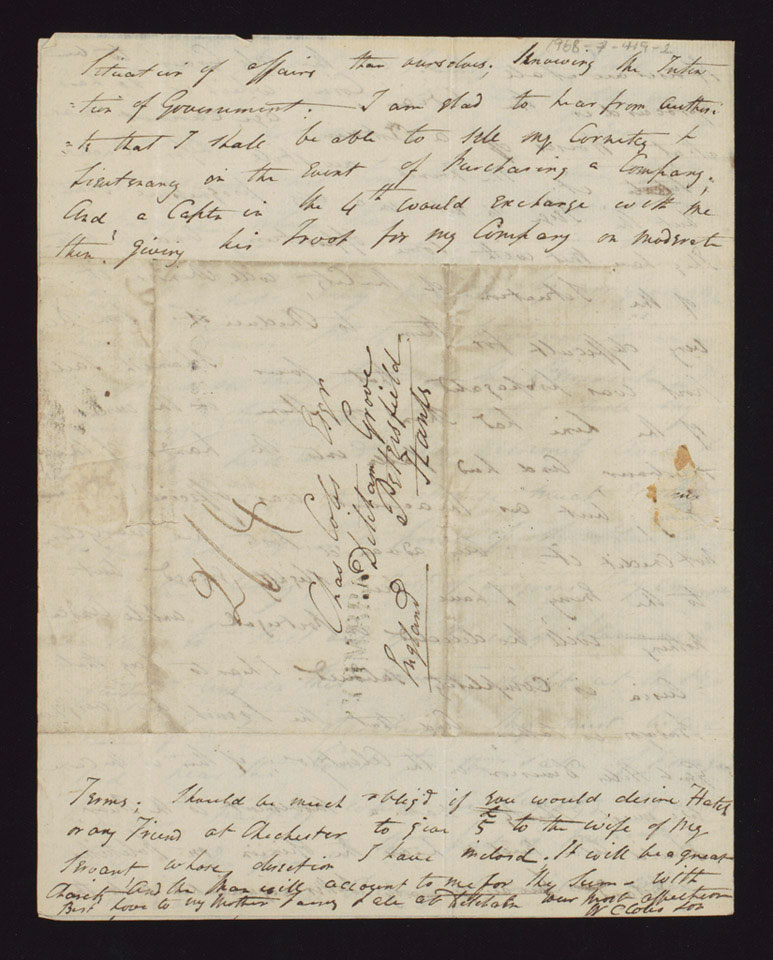 1968-7-419-2
Situation of affairs than ourselves, Knowing the Inten
=tion of Government. - I am glad to hear from Authori
=ty that I shall be able to sell my Cornetcy &
Lieutenancy in the Event of Purchasing a Company.
And a Captn in the 4th would Exchange with me
then, giving his Troop for my Company on moderate
2/4
Chas Coles Esqr
Ditcham Grove
Petersfield
Hants
England
Terms. Should be much obligd if you would desire Hatch
or any Friend at Chichester to give £5 to the wife of my
Servant whose direction I have inclosd. It will be a great
Charity And the Man will account to me for the Sum - with
Best love to my Mother & all at Ditcham Your most affection
W C Coles Son